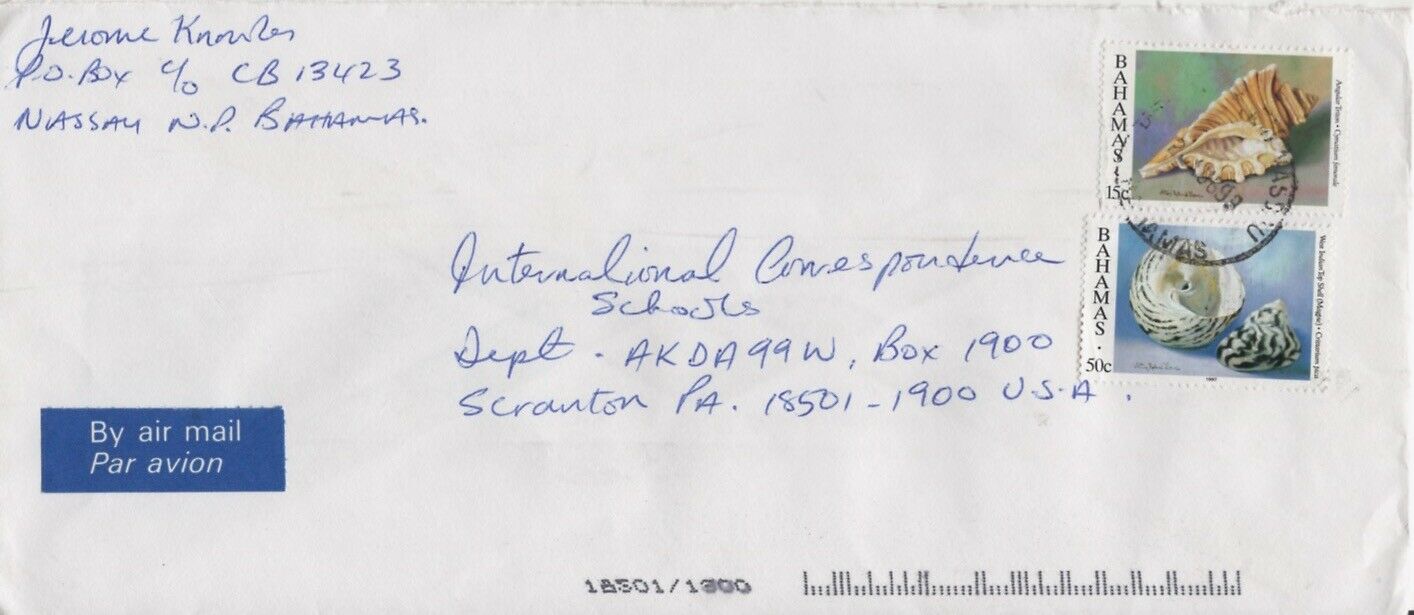 Jerome Knowles
P.O. Box c/o CB 13423
NASSAU N.P. BAHAMAS.
BAHAMAS
15c
Angular Triton • Cymatium femorale
NASSAU
BAHAMAS
BAHAMAS
50c
1997
West Indian Top Shell (Magpie) • Cittarium pica
International Correspondence
Schools
Dept. AKDA99W, Box 1900
Scranton PA. 18501-1900 U.S.A.
By air mail
Par avion
18501/1900